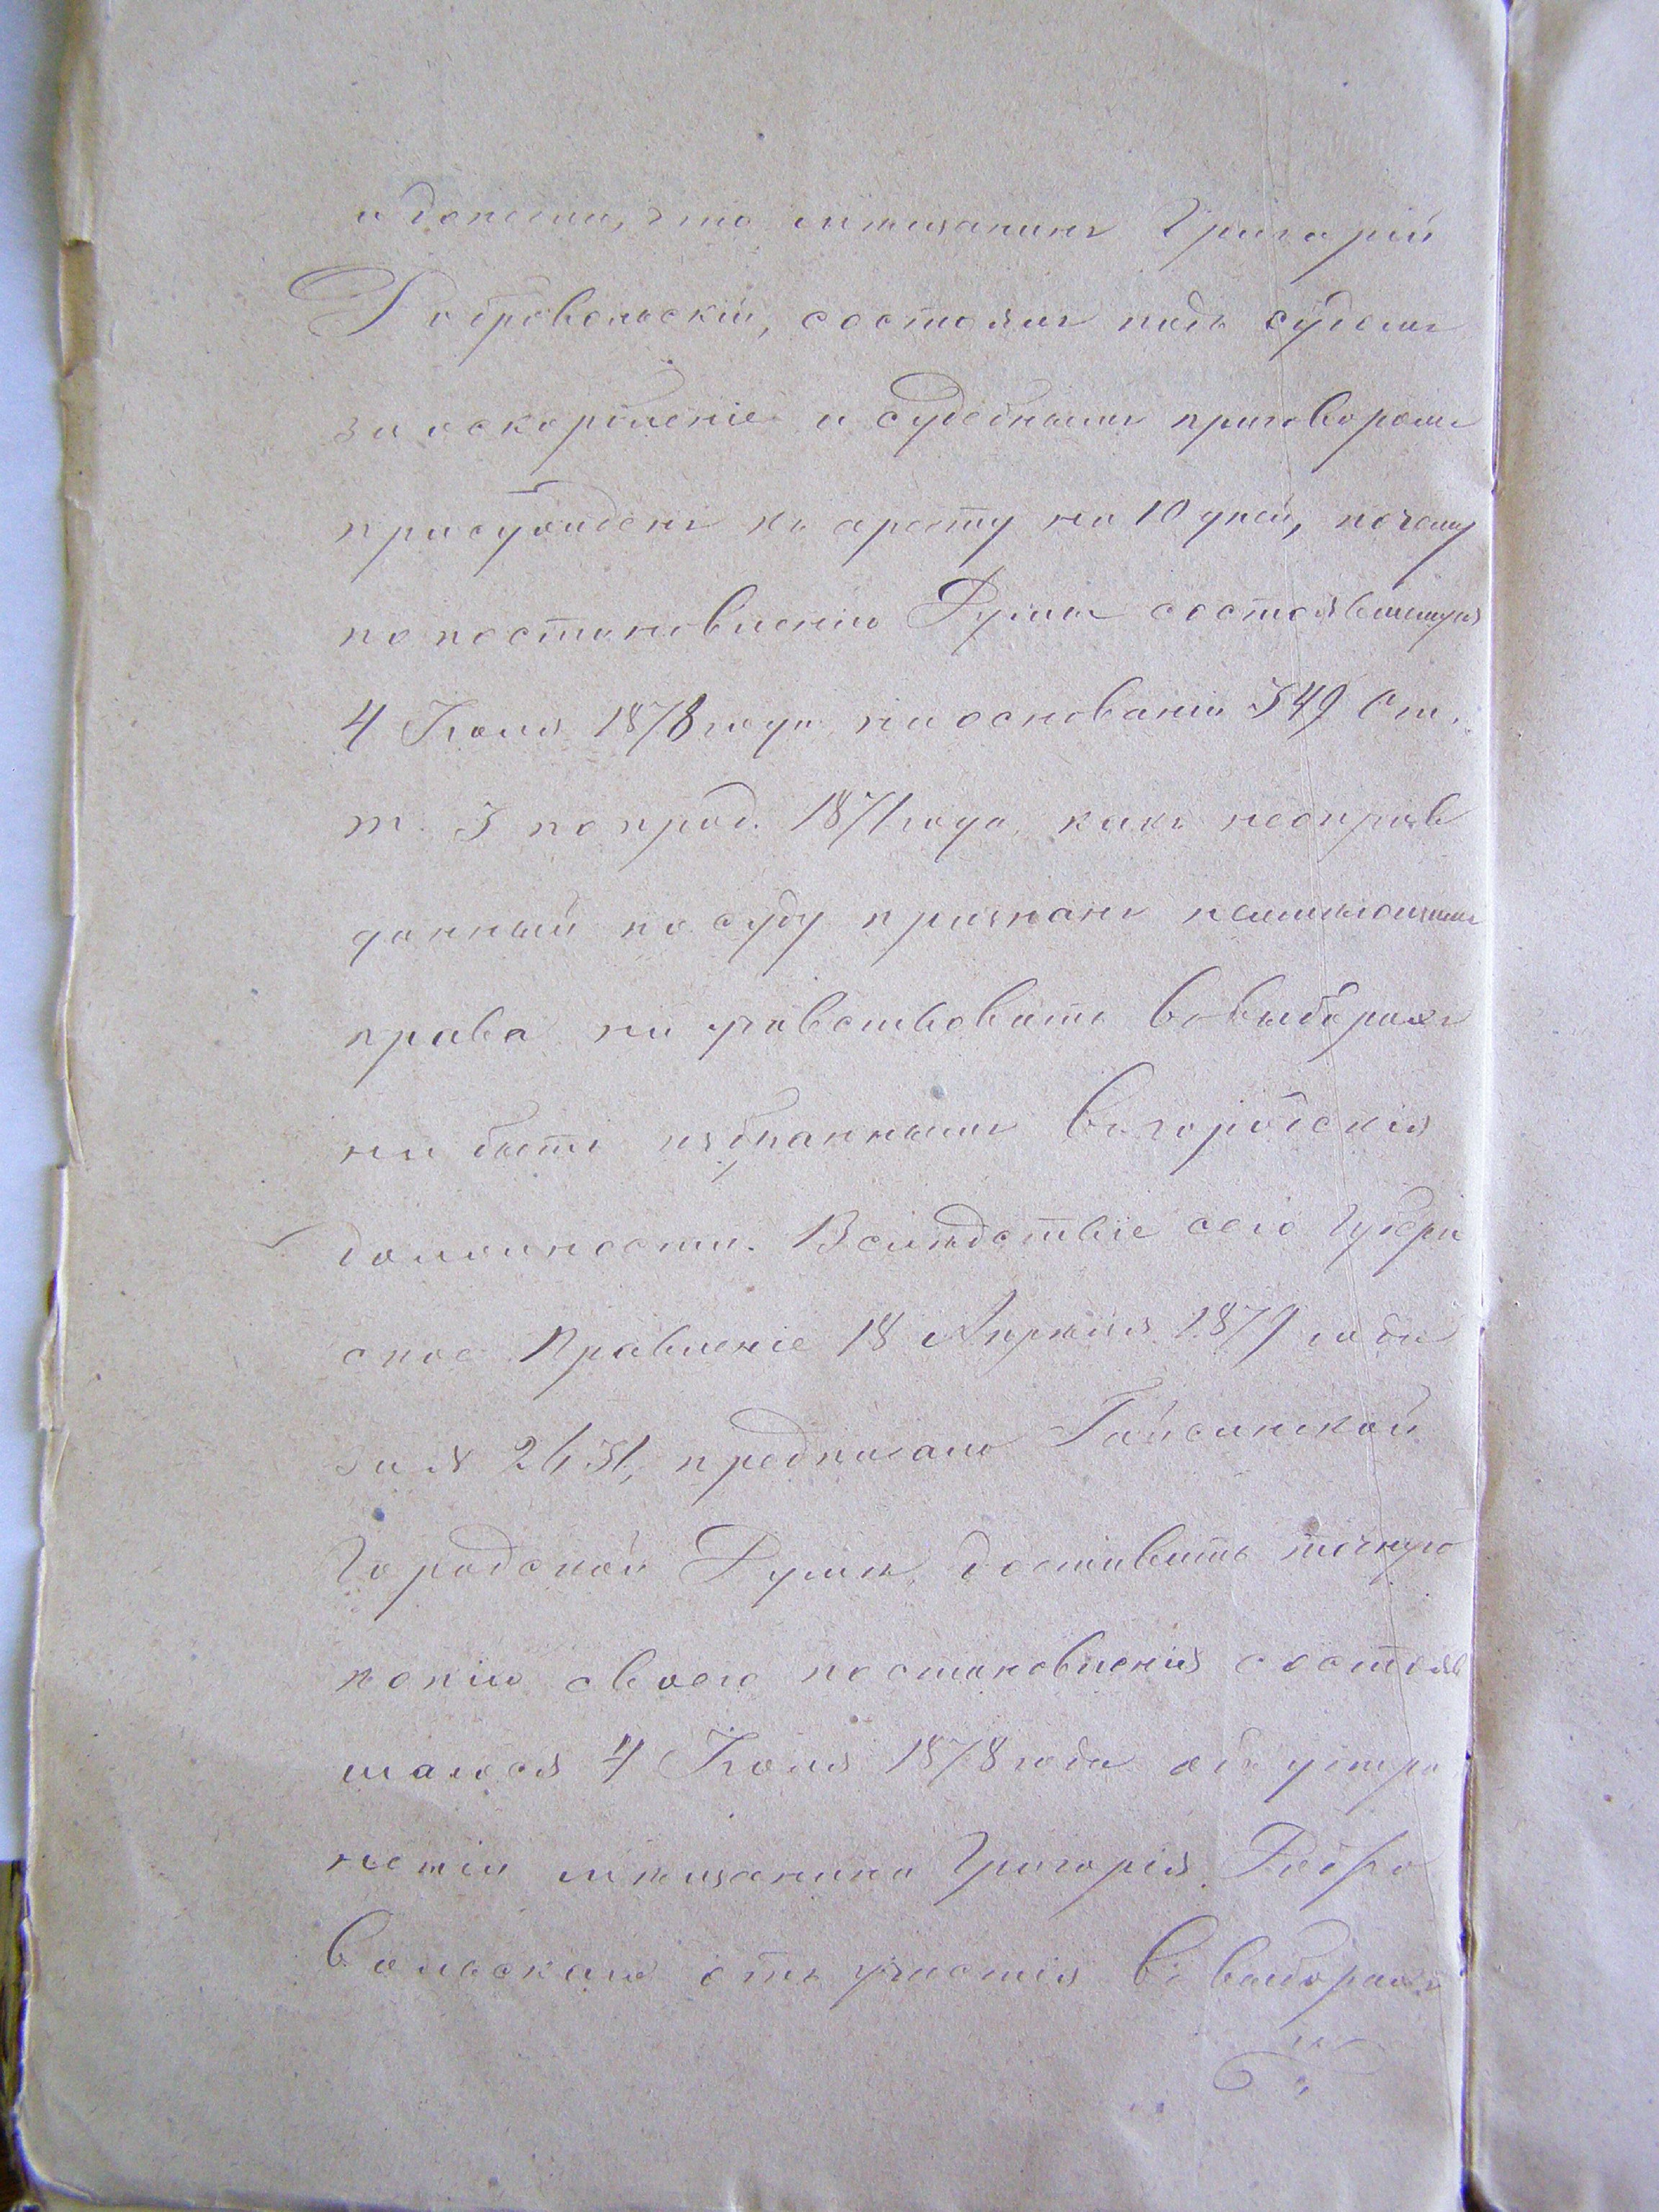 и донести, что мѣщанинъ Григорій
Добровольскій, состоялъ подъ судомъ
за оскорбленіе и судебнымъ приговоромъ
присужденъ къ аресту на 10 дней, почему
по постановленію Думы состоявшемуся
4 Іюля 1878 года на основаніи 549 Ст.
т. 3 по прод. 1871 года, какъ неоправ
данный по суду признанъ неимѣющимъ
права ни учавствовать въ выборахъ
ни быть избраннымъ въ городскія
должности. Вслѣдствіе сего Губерн
ское Правленіе 18 Апрѣля 1879 года
за № 2431, предписало Гайсинской
Городской Думѣ доставить точную
копію своего постановленія состояв
шагося 4 Іюля 1878 года объ устра
неніи мѣщанина Григорія Добро
вольскаго отъ участія въ выборахъ